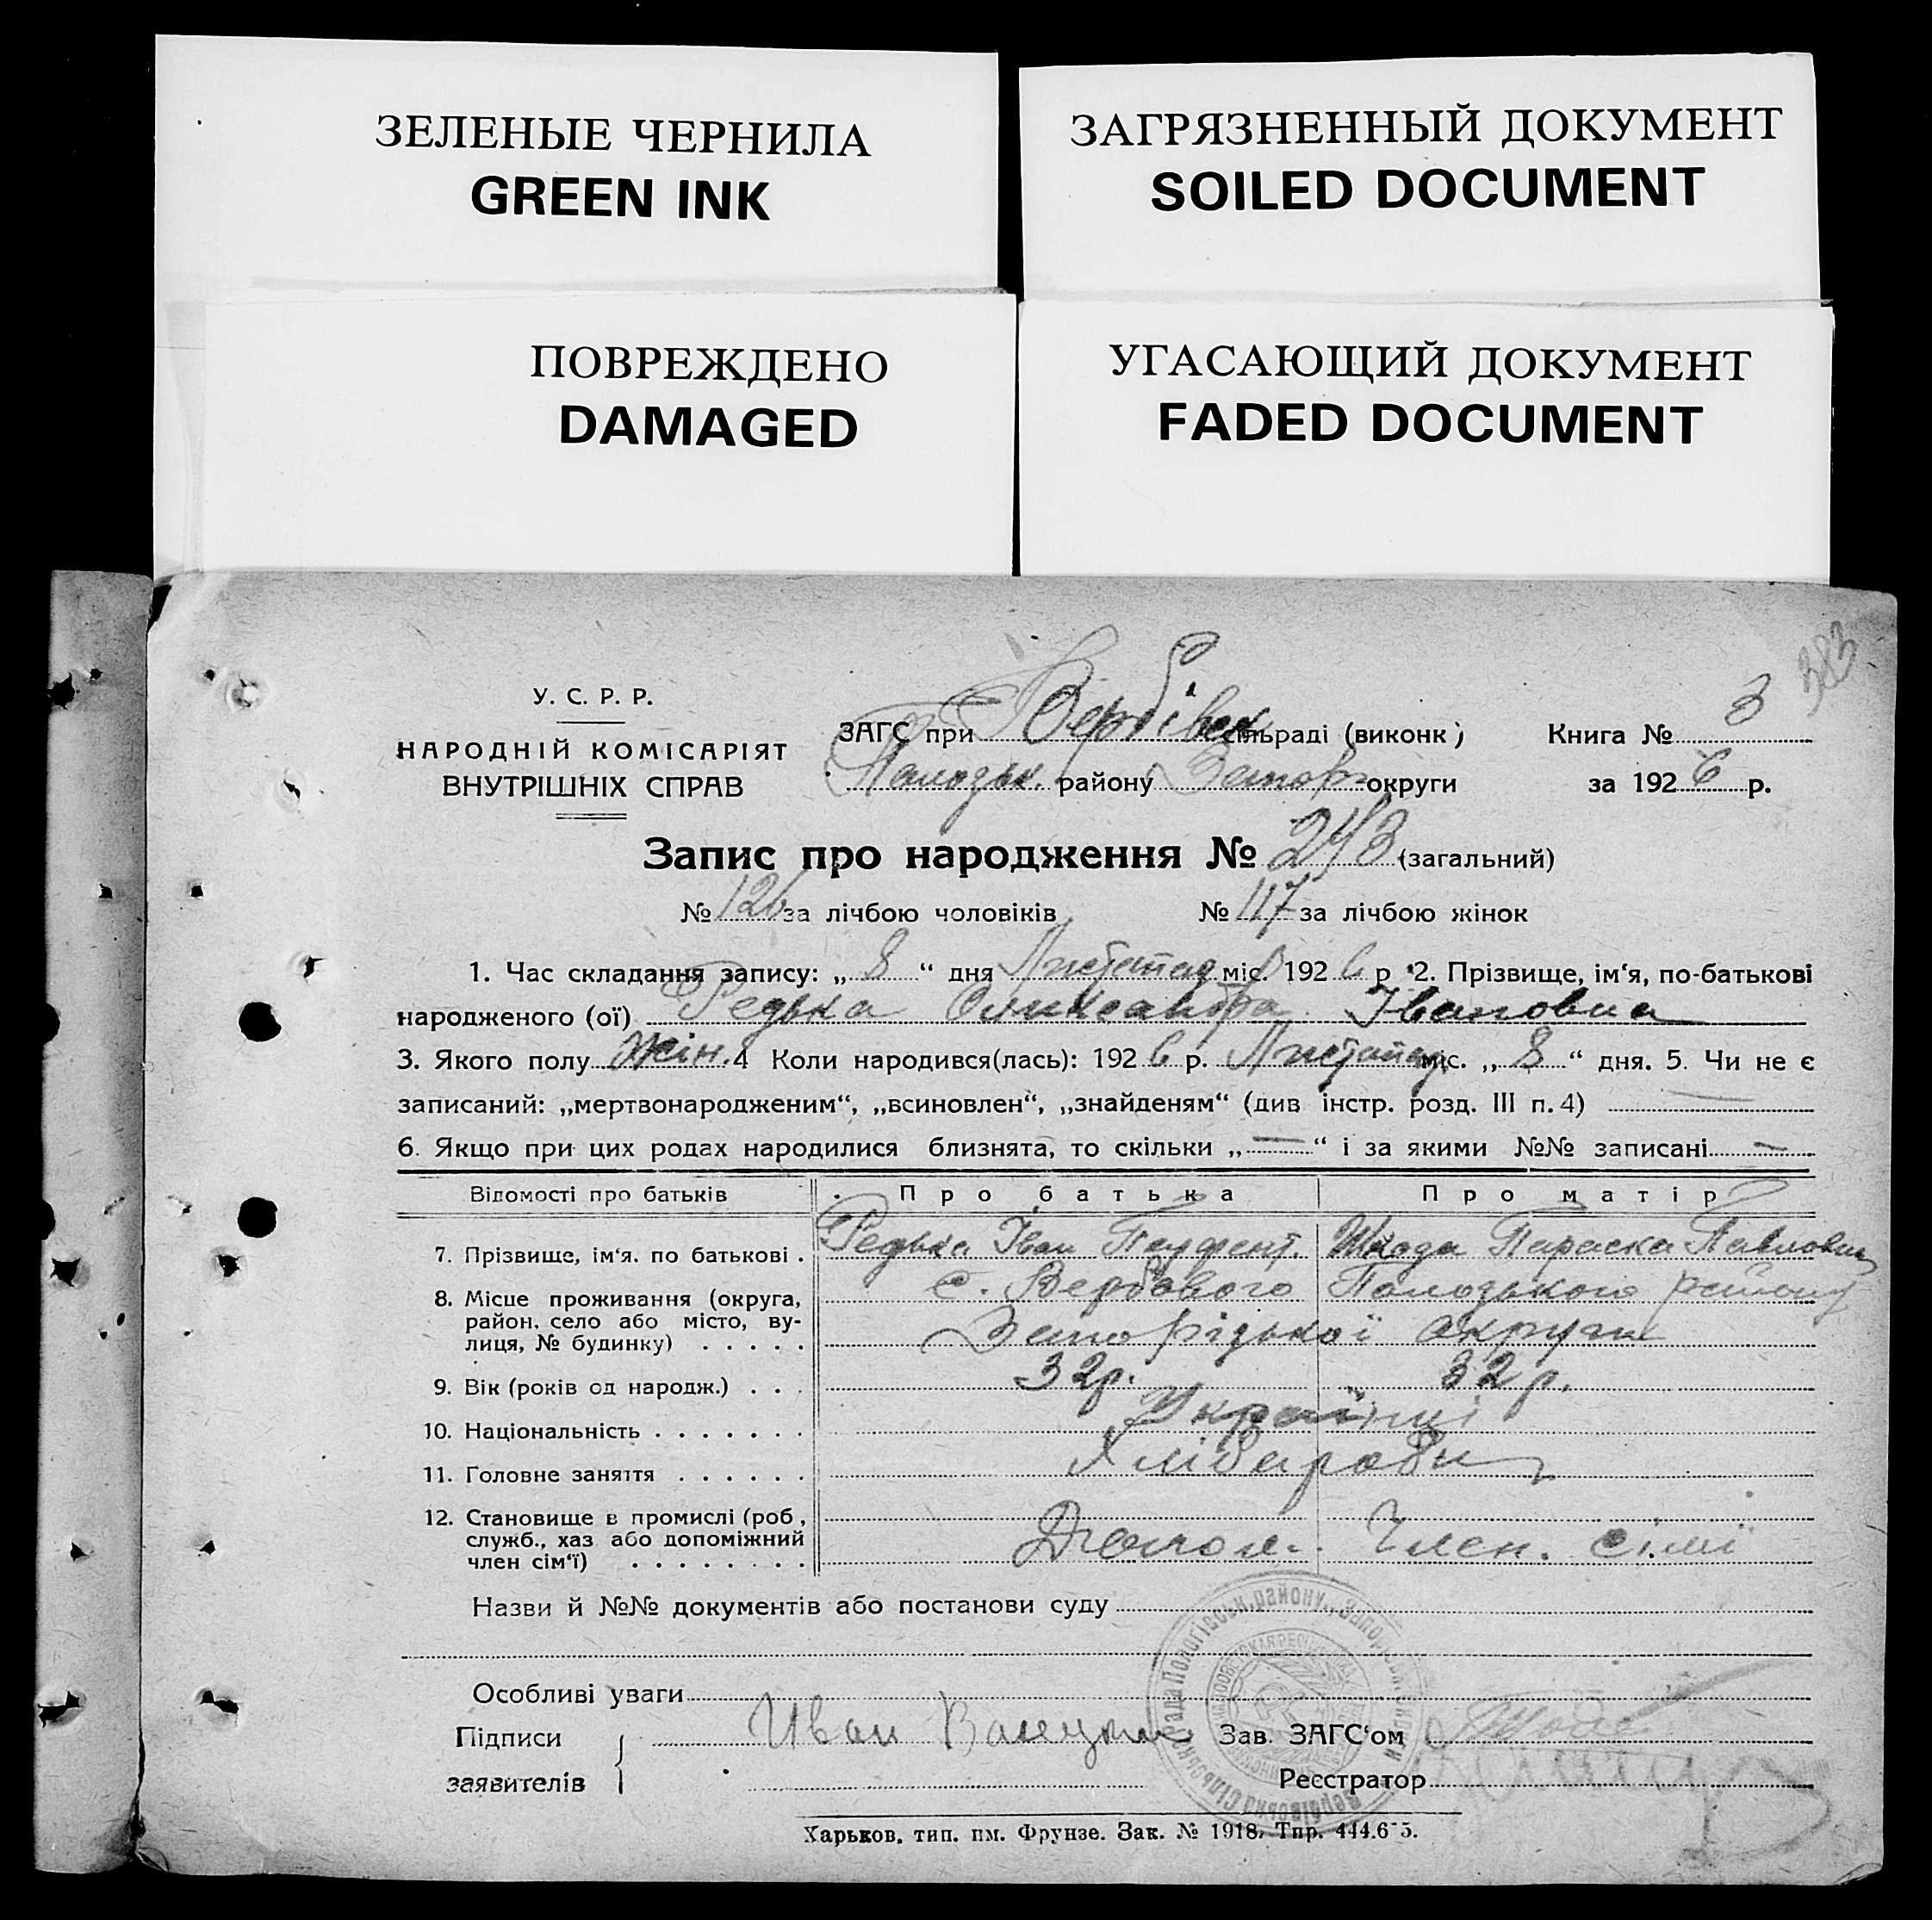 ЗЕЛЕНЫЕ ЧЕРНИЛА
GREEN INK
ЗАГРЯЗНЕННЫЙ ДОКУМЕНТ
SOILED DOCUMENT
ПОВРЕЖДЕНО
DAMAGED
УГАСАЮЩИЙ ДОКУМЕНТ
FADED DOCUMENT
383
У. С. Р. Р.
НАРОДНІЙ КОМІСАРІЯТ
ВНУТРІШНІХ СПРАВ
ЗАГС при Вербівск сільраді (виконк)
Пологськ. району Запор округи
Книга № 3
за 1926 р.
Запис про народження № 243 (загальний)
№ 126 за лічбою чоловіків № 117 за лічбою жінок
1. Час складання запису: „8“ дня Листопад міс 1926 р 2. Прізвище, ім'я, по-батькові
народженого (ої) Редька Олександра Івановна
3. Якого полу Жін. 4 Коли народився(лась): 1926 р. Листопад міс. „8“ дня. 5. Чи не є
записаний: „мертвонародженим“, „всиновлен“, „знайденям“ (див інстр. розд. III п. 4) —
6. Якщо при цих родах народилися близнята, то скільки „—“ і за якими №№ записані —
Відомості про батьків Про батька Про матір
7. Прізвище, ім'я. по батькові . Редька Іван Шкода Параска Павловна
8. Місце проживання (округа, район. село або місто, ву-
лиця, № будинку) . . . . . с. Вербового Пологського району
Запоріцької округи
9. Вік (років од народж.) . . . 32 р. 32 р.
10. Національність . . . . . . . Українці
11. Головне заняття . . . . . . Хлібароби
12. Становище в промислі (роб, служб., хаз або допоміжний
член сім'ї) . . . . . . . . Член. сімї
Назви й №№ документів або постанови суду
Особливі уваги
Підписи Иван Зав. ЗАГС'ом
заявителів Реєстратор
Харьков. тип. им. Фрунзе. Зак. № 1918.